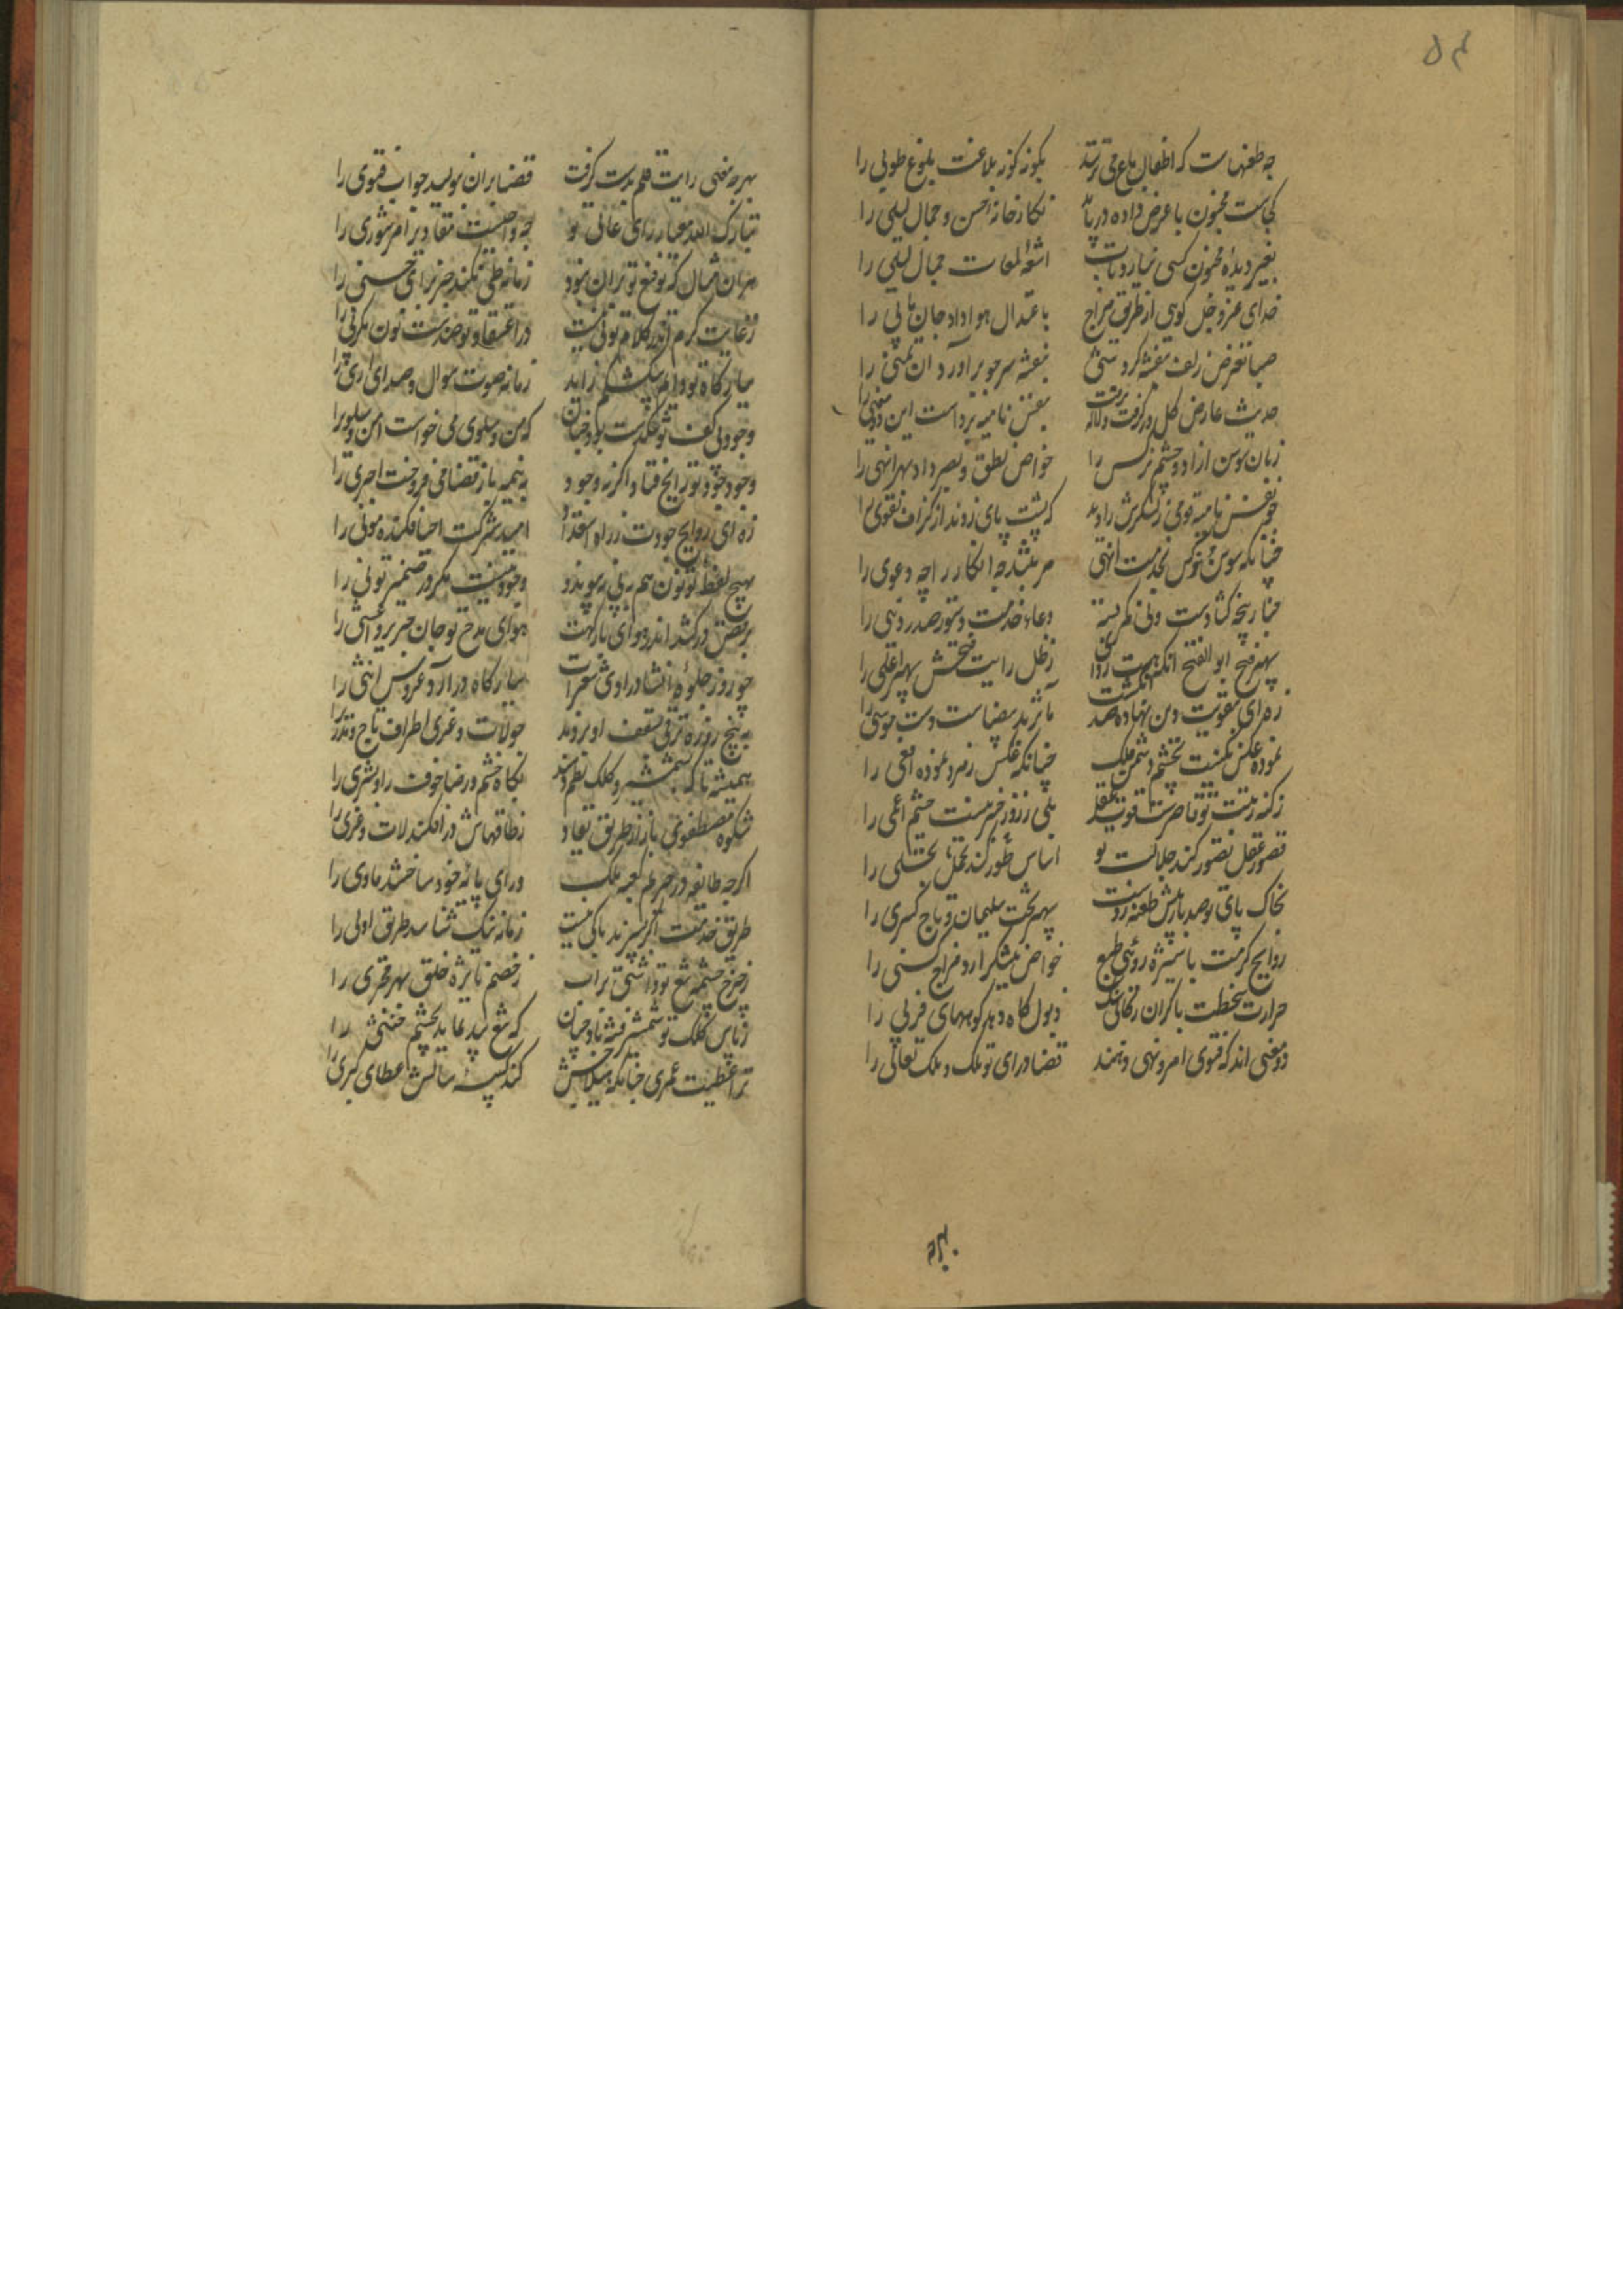 ۵۴
چه طعنهاست که اطفال باغ می نرسد بکوز کوز بلاغت بلوغ طوبی را
کجاست مجنون با عرض داده دریابد نکارخانه حسن و جمال لیلی را
بغیر دیده مجنون کسی نیارد تاب اشعه لمعات جمال لیلی را
خدای عز و جل کویی از طریق مزاج باعتدال هوا داد جان مانی را
صبا تعرض زلف بنفشه کرد شبی بنفشه سر چو برآورد این تمنی را
حدیث عارض کل در کرفت و لاله بنفس نامیه برداشت این دو معنی را
زبان سوسن آزاد و چشم نرکس را خواص نطق و بصر داد بهر انهی را
چو نفس نامیه قومی ز لشکرش را دید که پشت پای زدند از کزاف تقوی را
چنانکه سوسن و نرکس بخدمت انهی مرتبند چه انکار را چه دعوی را
چنار پنجه کشادست و نی کمر بسته دعاء خدمت دستور صدر دنیی را
سپهر فتح ابو الفتح آنکه هست ردا ز ظل رایت فتحش سپهر اعلی را
زهرای تقویت دین نهاده صد انکشت مآثر ید بیضاست دست موسی را
نموده عکس نکینت بچشم دشمن ملک چنانکه عکس زمرد نموده افعی را
ز کنه رتبت تو قاصرست قوت عقل بلی ز روز خبر نیست چشم اعمی را
قصور عقل تصور کند جلالت تو اساس طور کند تحمل تجلی را
بخاک پای تو صد بار پیش طعنه زدست سپهر تخت سلیمان و تاج کسری را
روایح کرمت با ستیزه رویی طبع خواص نیشکر آرد مزاج کسنی را
حرارت سخطت با کران رکابی سنک ذبول کاه دهد کوههای فربی را
دو مفتی اند که فتوی امر و نهی دهند قضا و رای تو ملک و ملک تعالی را
بهر چه مفتی رایت قلم بدست کرفت قضا بران بنویسد جواب فتوی را
تبارک الله معیار رای عالی تو چه واجبست مقادیر امر شوری را
هر آن مثال که توقیع تو بران نبود زمانه طی نکند جز برای حنی را
رعایت کرم اندر کلام تو لی نیست
زمانه صوت سوال و صدای اری را
وجود بی کف تو تنکدست بود چنان که من و سلوی می خواست امن و سلوی را
وجود جود تو رایج فتاد اکر نه وجود به نیمه باز قضا می فروخت اجری را
زه ای روایح جودت ز راه استعدا امید شرکت احیا فکنده موتی را
بهیچ لفظ تو نون هم بیی نه پیوندد وجود نیست مکر در ضمیر تو نی را
برقص درکشد اندر هوای بارکهت هوای مدح تو جان جریر و اعشی را
چو روز جلوه انشاد راوی شعرات ببارکاه درآرد عروس انشی را
به پنج روزه ترقی بسقف او بردند چو لات و عزی اطراف تاج و مدری را
همیشه تا که بشمشیر و کلک نظم دهند نکاه خشم و رضا خوف را و بشری را
شکوه مصطفوی باز از طریق نفاد ز طاقهاش درافکند لات و عزی را
اکرچه طایفه در حریم کعبه ملک ورای پایه خود ساختند ماوی را
طریق خدمتت اکر نسپرند باکی نیست زمانه نیک شناسد طریق اولی را
ز چرخ چشمه تیغ تو داشتن پر آب ز خصم نایژه خلق بهر مجری را
ز یاس کلک تو شمشیر فتنه باد چنان که تیغ بید نماید بچشم خنثی را
ترا عطیت عمری چنانکه هیلاجش کند کبیسه سالش عطای کبری را